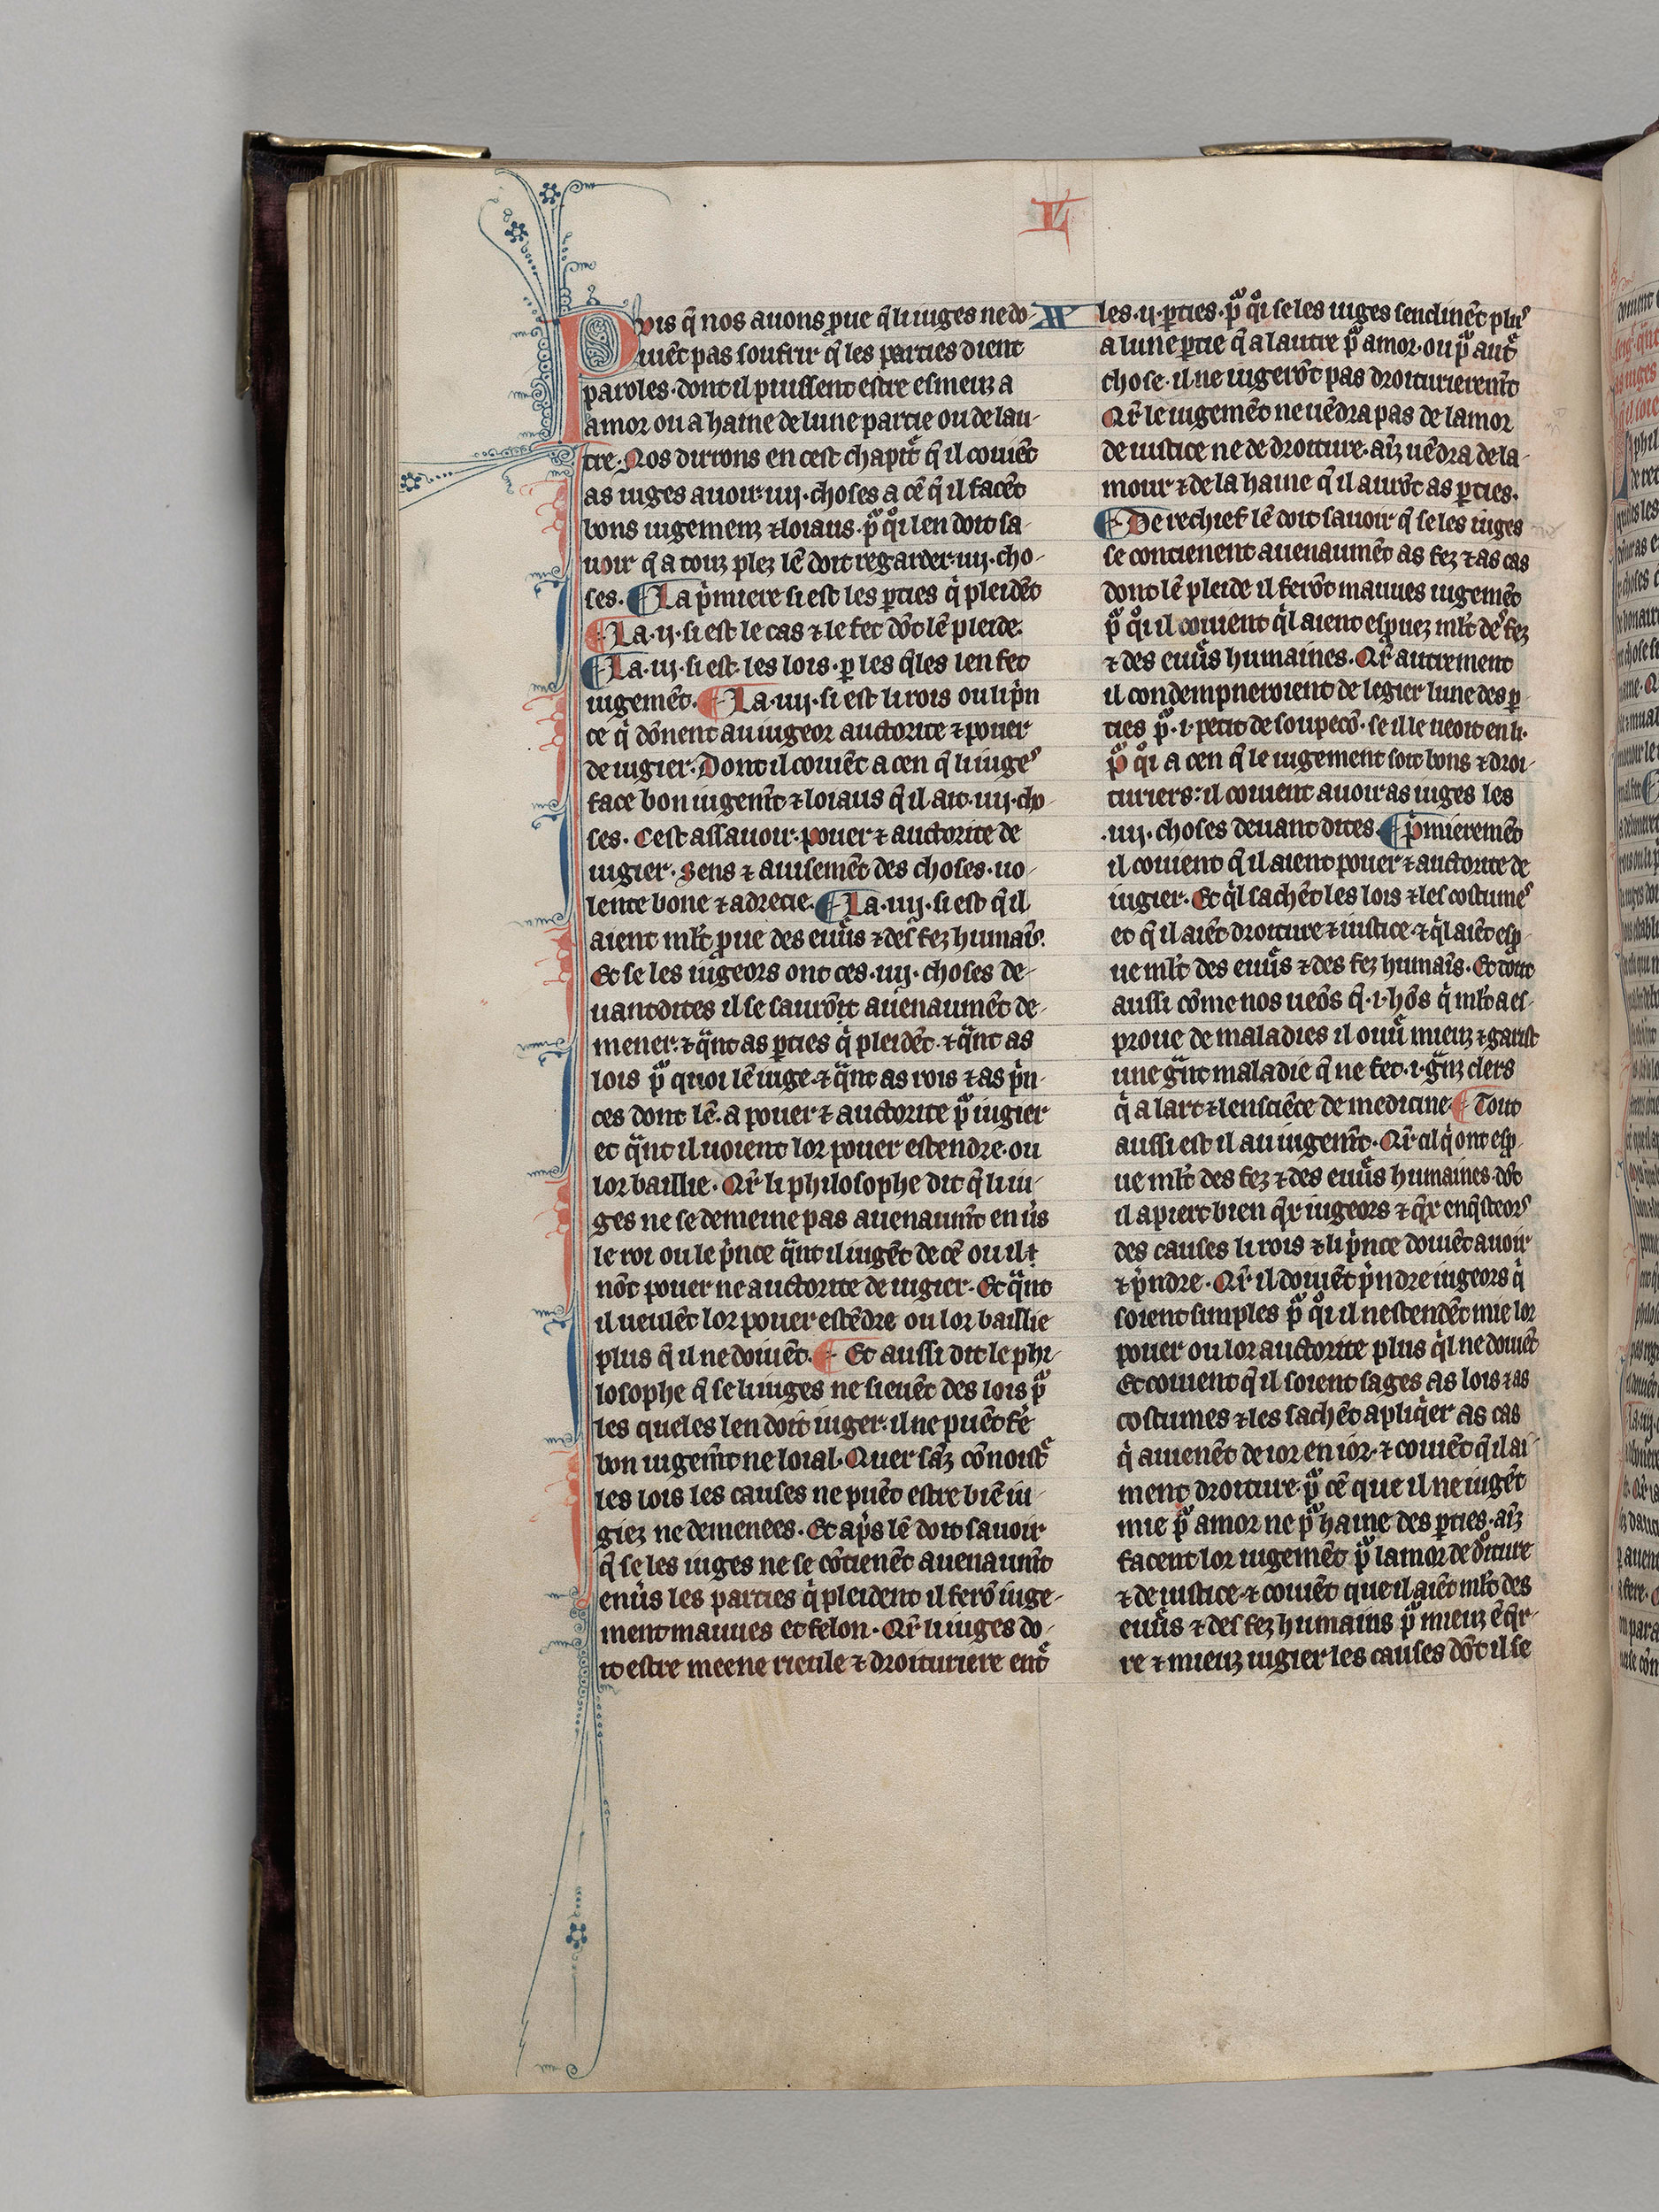 L
Puis q̃ nos auons ꝓue q̃ li iuges ne do-
iuẽt pas soufrir q̃ les parties dient
paroles · dont il puissent estre esmeuz a
amor ou a haine de lune partie ou de lau-
tre. Nos dirrons en cest chapitͤ q̃ il couiẽt
as iuges auoir ·iiij· choses a cẽ q̃ il facẽt
bons iugemenz ⁊ loiaus · pͦ qͦi len doit sa-
uoir q̃ a touz plez lẽ doit regarder ·iiij· cho-
ses. La pͥmiere si est les ꝑties qͥ pleidẽt
La ·ij· si est le cas ⁊ le fet dõt lẽ pleide.
La ·iij· si est les lois · ꝑ les q̃les len fet
iugemẽt. La ·iiij· si est li rois ou li pͥn
ce qͥ dõnent au iugeor auctorite ⁊ pouer
de iugier. Dont il couiẽt a cen q̃ li iugeˢ
face bon iugem̃t ⁊ loiaus q̃ il ait ·iiij· cho-
ses. Cest assauoir · pouer ⁊ auctorite de
iugier. Sens ⁊ auisemẽt des choses. uo-
lente bone ⁊ adrecie. La ·iiij· si est q̃ il
aient ml̃t ꝓue des euuͣs ⁊ des fez humaĩs.
Et se les iugeors ont ces ·iiij· choses de-
uantdites il se saurõt auenaumẽt de-
mener. ⁊ qͣnt as ꝑties qͥ pleidẽt. ⁊ qͣnt as
lois pͦ quoi lẽ iuge. ⁊ qͣnt as rois ⁊ as pͥn-
ces dont lẽ. a pouer ⁊ auctorite pͦ iugier
et qͣnt il uoient lor pouer estendre. ou
lor baillie. Qr̃ li philosophe dit q̃ li iu-
ges ne se demeine pas auenaum̃t en ũs
le roi ou le pͥnce qͣnt il iugẽt de cẽ ou il
nõt pouer ne auctorite de iugier. Et qͣnt
il ueulẽt lor pouer estẽdre ou lor baillie
plus q̃ il ne doiuẽt. Et aussi dit le phi-
losophe q̃ se li iuges ne sieuẽt des lois pͦ
les queles len doit iuger. il ne puẽt fẽ
bon iugem̃t ne loial. Quer sãz cõnoistͤ
les lois les causes ne puẽt estre biẽ iu-
giez ne demenees. Et apͥs lẽ doit sauoir
q̃ se les iuges ne se cõtienẽt auenaum̃t
enũs les parties qͥ pleident il ferõ iuge-
ment mauues et felon. Qr̃ li iuges do-
it estre meene rieule ⁊ droituriere entͤ
les ·ij· ꝑties. pͦ qͦi se les iuges senclinẽt plꝰ
a lune ꝑtie q̃ a lautre pͦ amor. ou pͦ autͤ
chose. il ne iugerõt pas droiturierem̃t
Qr̃ le iugemẽt ne uẽdra pas de lamor
de iustice ne de droiture. aĩz uẽdra de la-
mour ⁊ de la haine q̃ il aurõt as ꝑties.
De rechief lẽ doit sauoir q̃ se les iuges
se contienent auenaumẽt as fez ⁊ as cas
dont lẽ pleide il ferõt mauues iugemẽt
pͦ qͦi il couient qͥl aient esꝓuez ml̃t deˢ fez
⁊ des euuͣs humaines. Qr̃ autrement
il condempneroient de legier lune des ꝑ-
ties pͦ ·i· petit de soupecõ. se il le ueoit en li.
pͦ qͦi a cen q̃ le iugement soit bons ⁊ droi-
turiers: il couient auoir as iuges les
·iiij· choses deuant dites. Pͥmieremẽt
il couient q̃ il aient pouer ⁊ auctorite de
iugier. Et qͥl sachẽt les lois ⁊ les costumeˢ
et q̃ il aiẽt droiture ⁊ iustice. ⁊ qͥl aiẽt esꝓ-
ue ml̃t des euuͣs ⁊ des fez humaĩs. Et tout
aussi cõme nos ueõs q̃ ·i· hõs qͥ ml̃t a es-
proue de maladies il ouuͤ mieuz ⁊ garist
une gͣnt maladie q̃ ne fet ·i· gͣnz clers
qͥ a lart ⁊ len sciẽce de medicine. Tout
aussi est il au iugem̃t. Qr̃ cil qͥ ont esꝓ-
ue ml̃t des fez ⁊ des euuͣs humaines. dõt
il apiert bien qͥx iugeors ⁊ qͥx enq̃steorˢ
des causes li rois ⁊ li pͥnce doiuẽt auoir
⁊ pͥndre. Qr̃ il doiuẽt pͥndre iugeors qͥ
soient simples pͦ qͦi il nestendẽt mie lor
pouer ou lor auctorite plus qͥl ne doiuẽt
Et couient q̃ il soient sages as lois ⁊ as
costumes ⁊ les sachẽt apliqͥer as cas
qͥ auienẽt de ior en ior. ⁊ couiẽt q̃ il ai-
ment droiture. pͦ cẽ que il ne iugẽt
mie pͦ amor ne pͦ haine des ꝑties. aĩz
facent lor iugemẽt pͦ lamor de dͦiture
⁊ de iustice. ⁊ couiẽt que il aiẽt ml̃t des
euuͣs ⁊ des fez humains pͦ mieuz ẽqͥr-
re ⁊ mieuz iugier les causes dõt il se